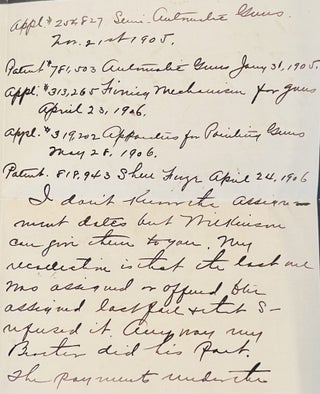 Appl # 254827 Semi-Automatic Guns.
Nov. 21st 1905.
Patent # 781,503 Automatic Guns Jany 31, 1905.
Appl. # 313,265 Firing Mechanism for guns
April 23, 1906.
Appl. # 319202 Apparatus for Pointing Guns
May 28, 1906.
Patent. 818,943 Shell Fuze April 24, 1906
I don't know the assign-
ment dates but Wilkinson
can give them to you. My
recollection is that the last one
was assigned or offered to be
assigned last fall & that S-
refused it. Anyway my
did his part.
The payments under the